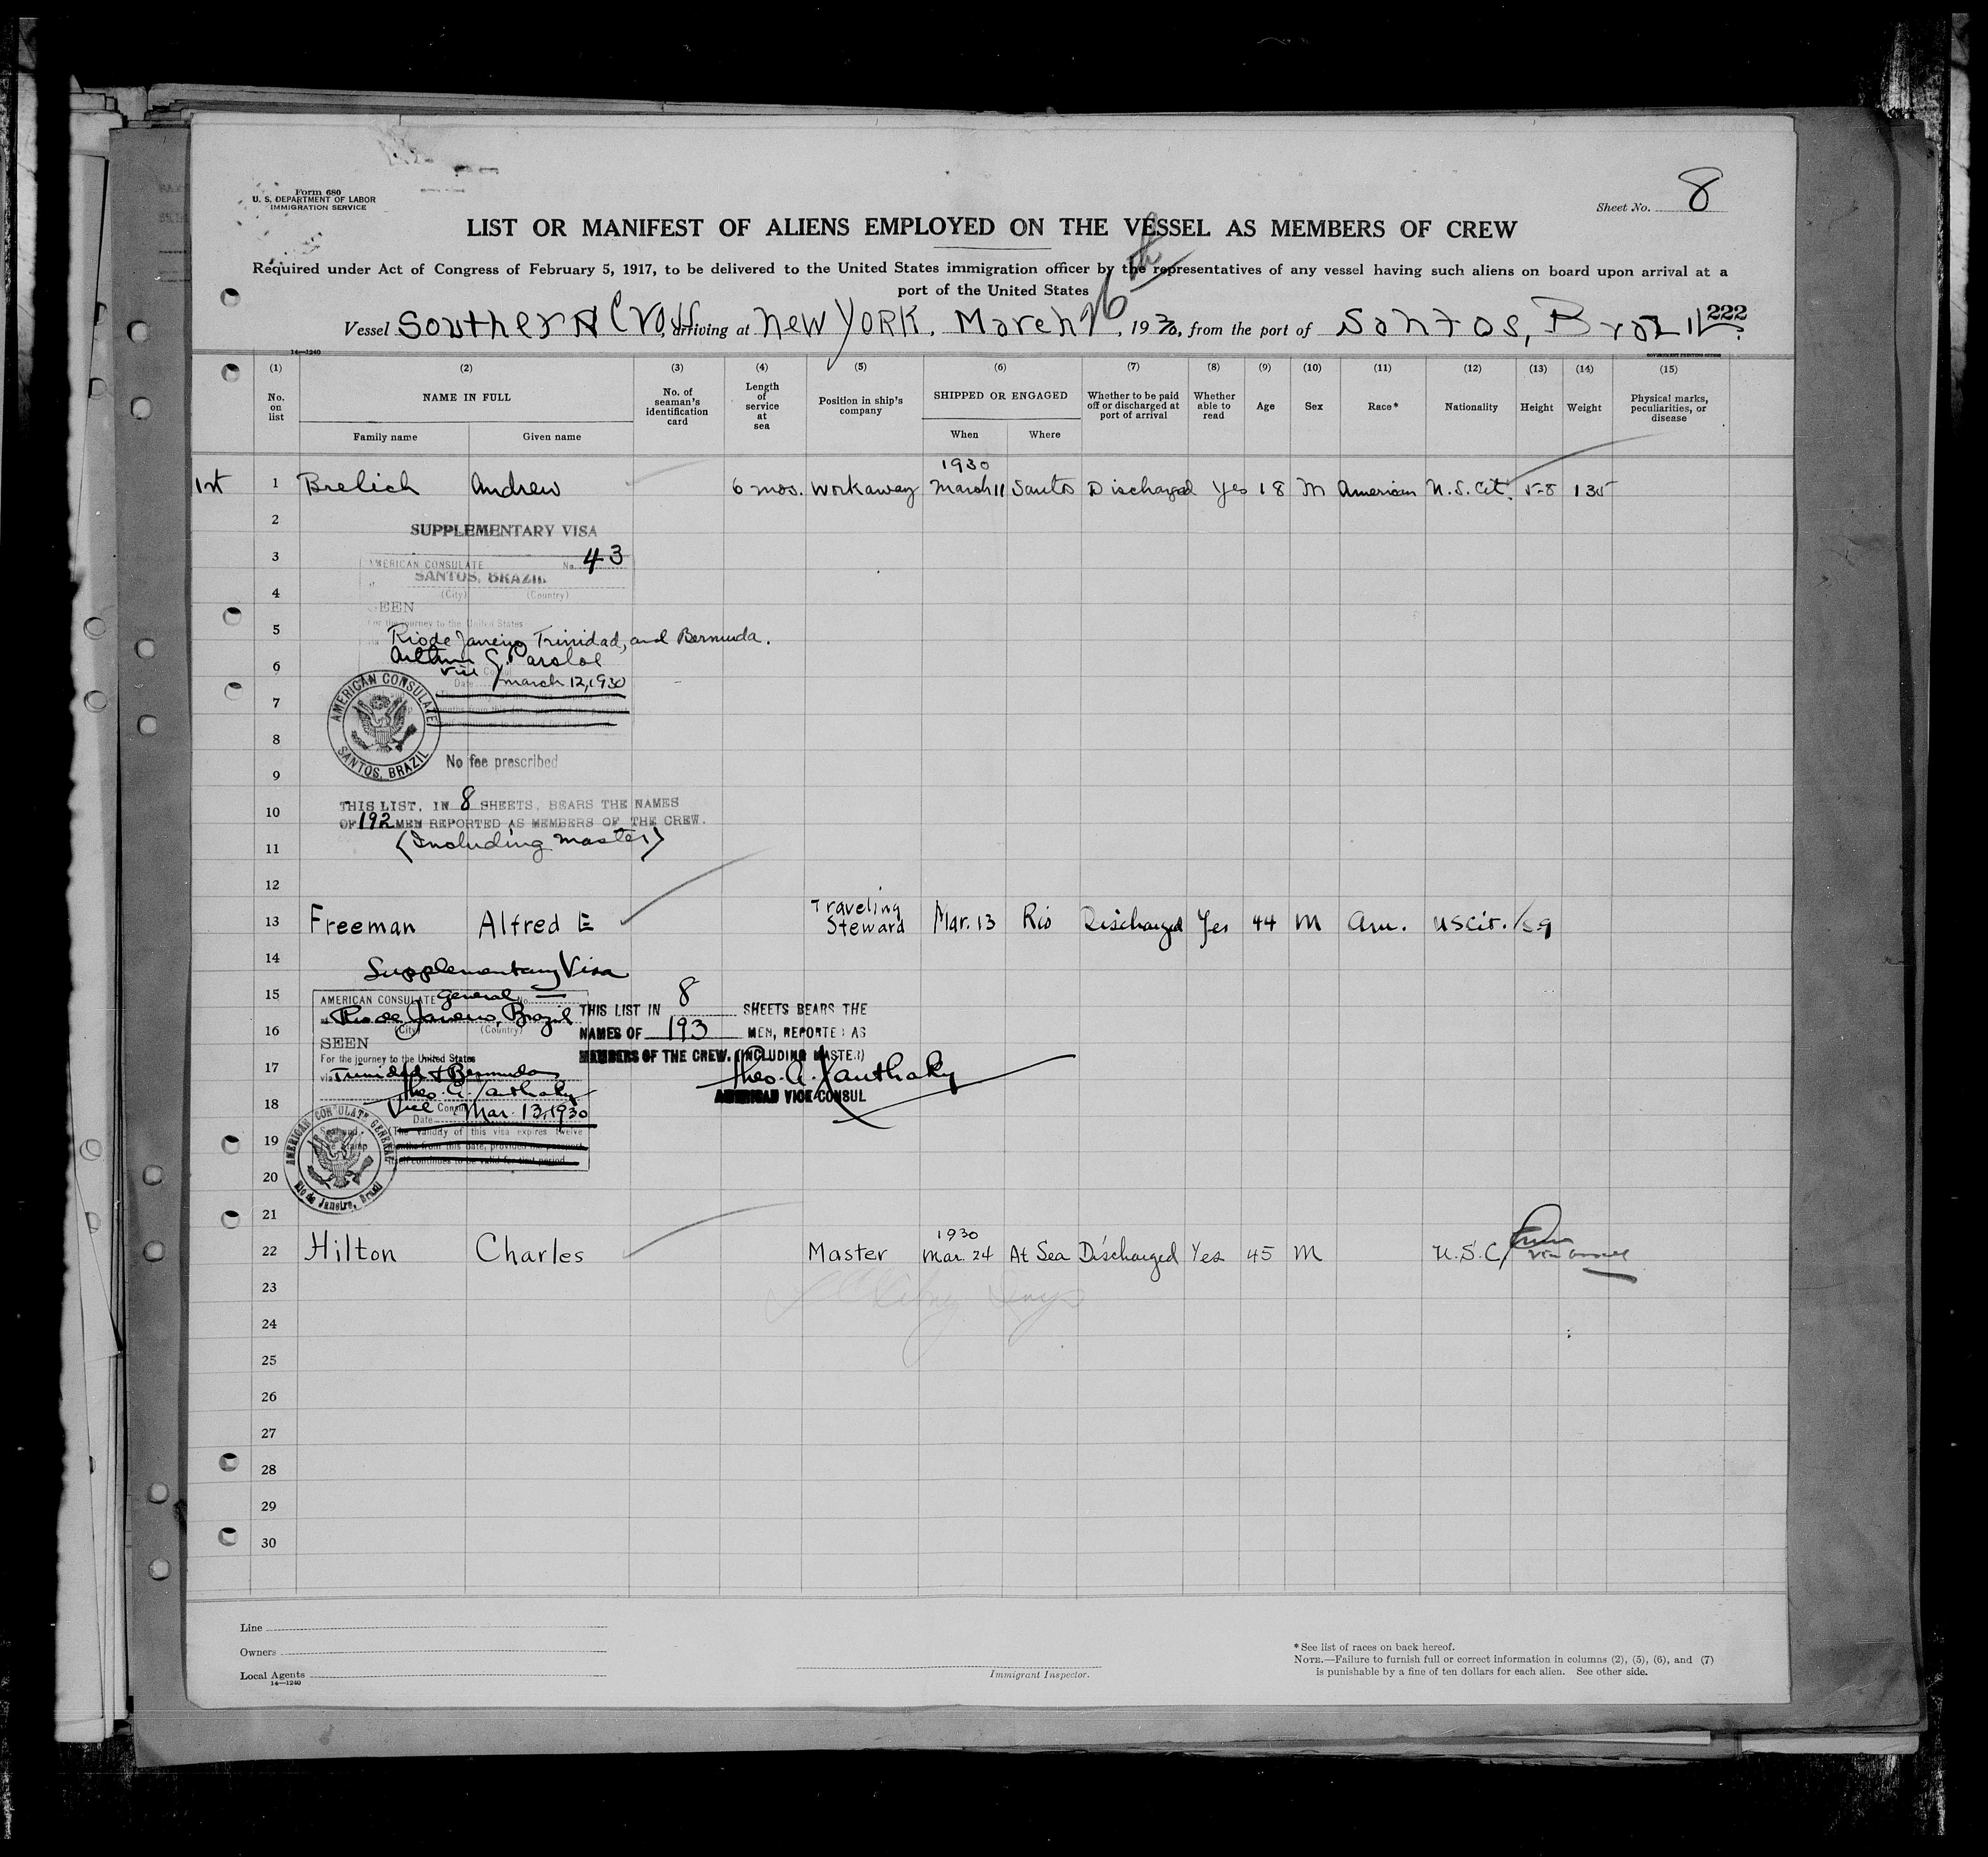 Form 680
U. S. DEPARTMENT OF LABOR
IMMIGRATION SERVICE
Sheet No. 8
LIST OR MANIFEST OF ALIENS EMPLOYED ON THE VESSEL AS MEMBERS OF CREW
Required under Act of Congress of February 5, 1917, to be delivered to the United States immigration officer by the representatives of any vessel having such aliens on board upon arrival at a
port of the United States
222
Vessel Southern Cross, arriving at New York, March 26th, 1930, from the port of Santos, Brazil.
14—1240
GOVERNMENT PRINTING OFFICE
(1) (2) (3) (4) (5) (6) (7) (8) (9) (10) (11) (12) (13) (14) (15)
No. on list NAME IN FULL No. of seaman's identification card Length of service at sea Position in ship's company SHIPPED OR ENGAGED Whether to be paid off or discharged at port of arrival Whether able to read Age Sex Race* Nationality Height Weight Physical marks, peculiarities, or disease
Family name Given name When Where
1930
1st 1 Brelich Andrew 6 mos. Workaway March 11 Santos Discharged Yes 18 M American U.S. Cit. 5-8 135
2
SUPPLEMENTARY VISA
3
AMERICAN CONSULATE No. 43
SANTOS, BRAZIL
4
(City) (Country)
SEEN
For the journey to the United States
5
Rio de Janeiro, Trinidad, and Bermuda.
6
Vice Consul
Date March 12, 1930
7
AMERICAN CONSULATE
SANTOS, BRAZIL
8
No fee prescribed
9
10
THIS LIST, IN 8 SHEETS, BEARS THE NAMES
OF 192 MEN REPORTED AS MEMBERS OF THE CREW.
(Including master)
11
12
13 Freeman Alfred E Traveling Steward Mar. 13 Rio Discharged Yes 44 M Am. US Cit. 5 9
14
Supplementary Visa
15
AMERICAN CONSULATE General No.
Rio de Janeiro, Brazil
(City) (Country)
16
SEEN
For the journey to the United States
17
via Trinidad & Bermuda
Theo. A. Xanthaky
18
Vice Consul Mar. 13, 1930
Date
The validity of this visa expires twelve
months from this date, provided the passport
continues to be valid for that period.
AMERICAN CONSULATE GENERAL
Rio de Janeiro, Brazil
THIS LIST IN 8 SHEETS BEARS THE
NAMES OF 193 MEN, REPORTED AS
MEMBERS OF THE CREW. (INCLUDING MASTER)
Theo. A. Xanthaky
AMERICAN VICE CONSUL
19
20
21
1930
22 Hilton Charles Master Mar. 24 At Sea Discharged Yes 45 M U.S.C.
23
24
25
26
27
28
29
30
Line
Owners
Local Agents
14—1240
Immigrant Inspector.
* See list of races on back hereof.
NOTE.—Failure to furnish full or correct information in columns (2), (5), (6), and (7)
is punishable by a fine of ten dollars for each alien. See other side.